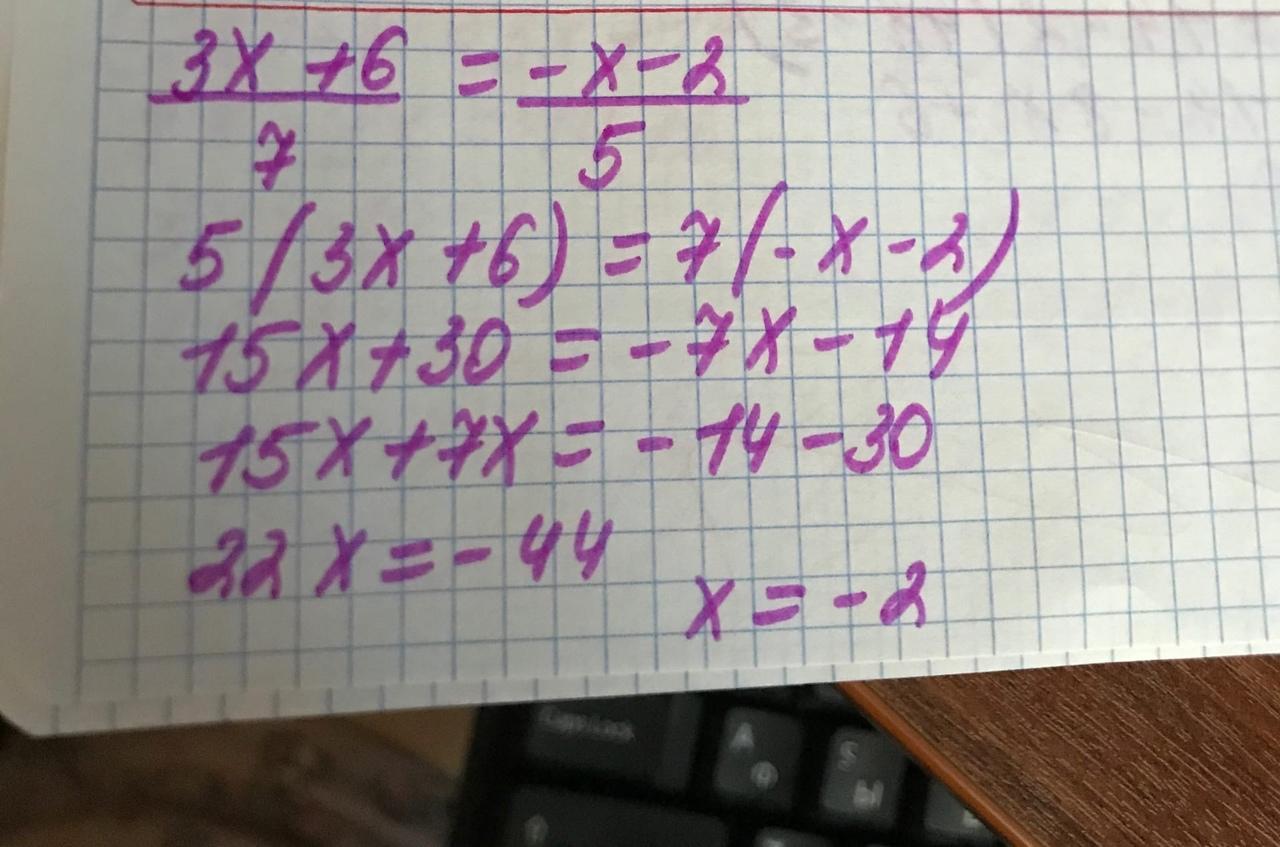 3x + 6 = -x - 2
7 5
5(3x + 6) = 7(-x - 2)
15x + 30 = -7x - 14
15x + 7x = -14 - 30
22x = -44 x = -2
Caps Lock
A S
Ф Ы